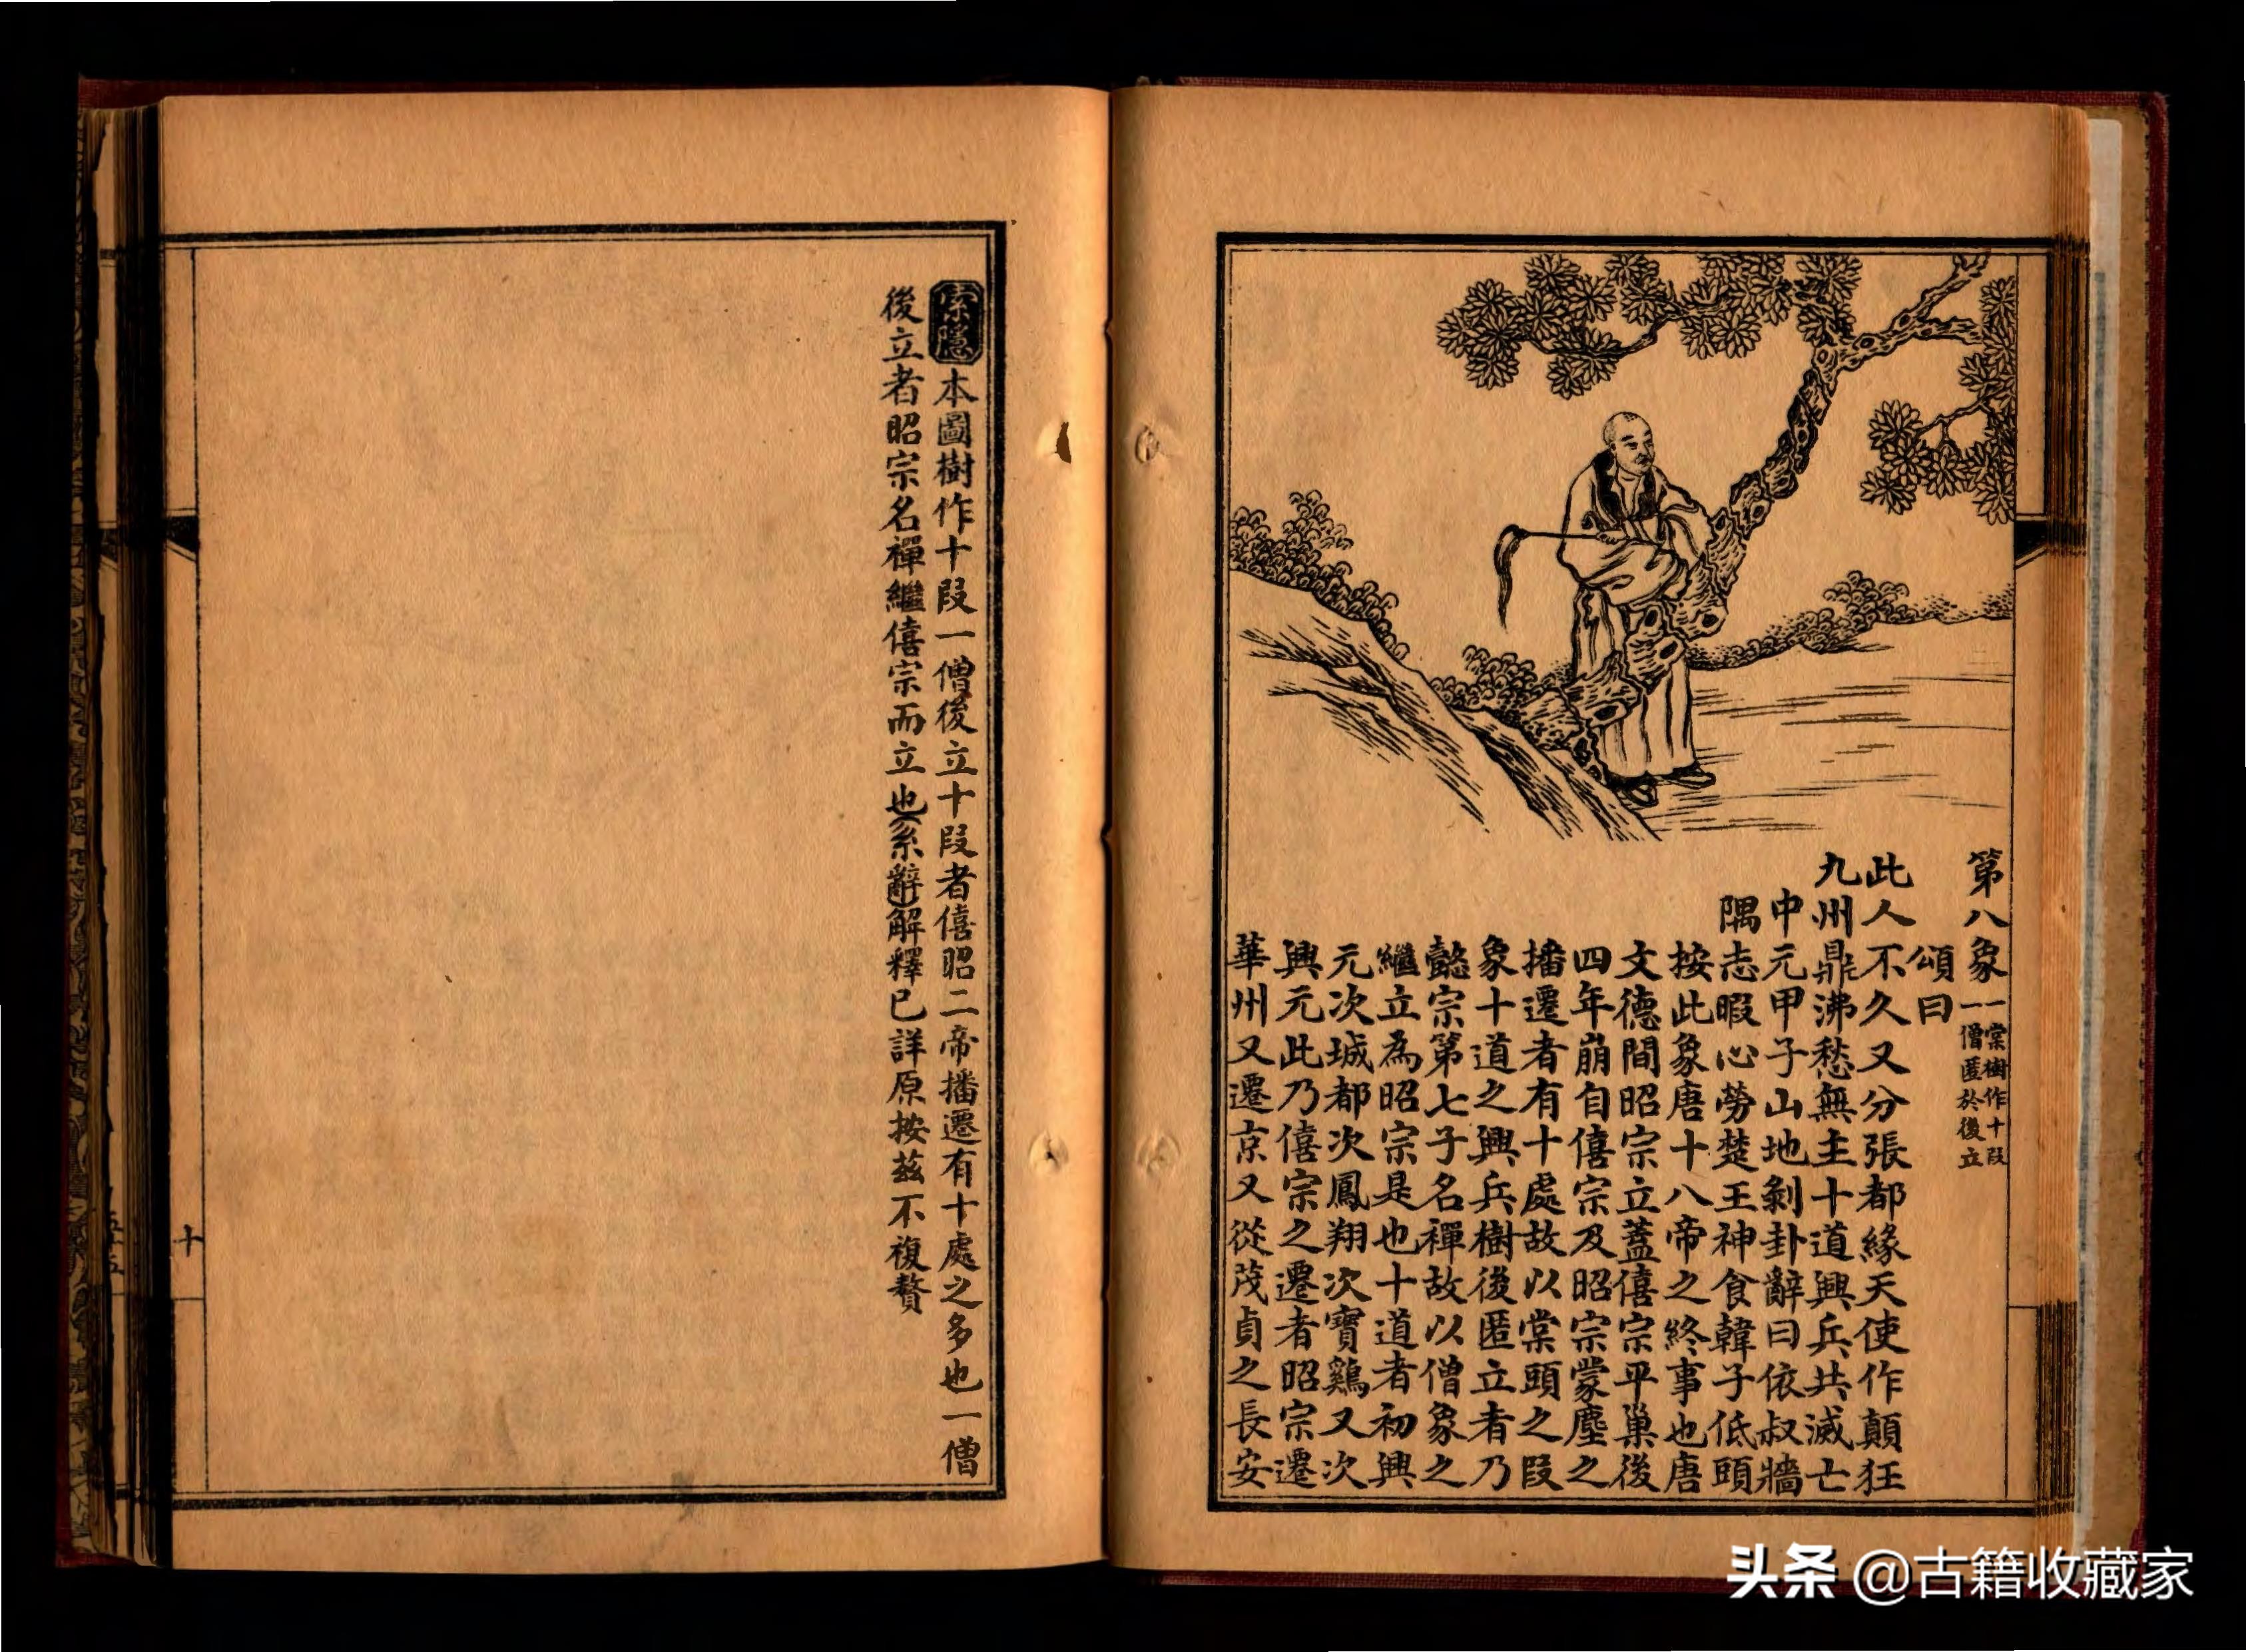 第八象
棠樹作十段
一僧匿於後立
頌曰
此人不久又分張都緣天使作顛狂
九州鼎沸愁無主十道興兵共滅亡
中元甲子山地剝卦辭曰依叔牆
隅志暇心勞楚王神食韓子低頭
按此象唐十八帝之終事也唐
文德間昭宗立蓋僖宗平巢後
四年崩自僖宗及昭宗蒙塵之
播遷者有十處故以棠頭之段
象十道之興兵樹後匿立者乃
懿宗第七子名禪故以僧象之
繼立為昭宗是也十道者初興
元次城都次鳳翔次寶鷄又次
興元此乃僖宗之遷者昭宗遷
華州又遷京又從茂貞之長安
索隱本圖樹作十段一僧後立十段者僖昭二帝播遷有十處之多也一僧
後立者昭宗名禪繼僖宗而立也(系辭)解釋已詳原按茲不複贅
十
头条 @古籍收藏家